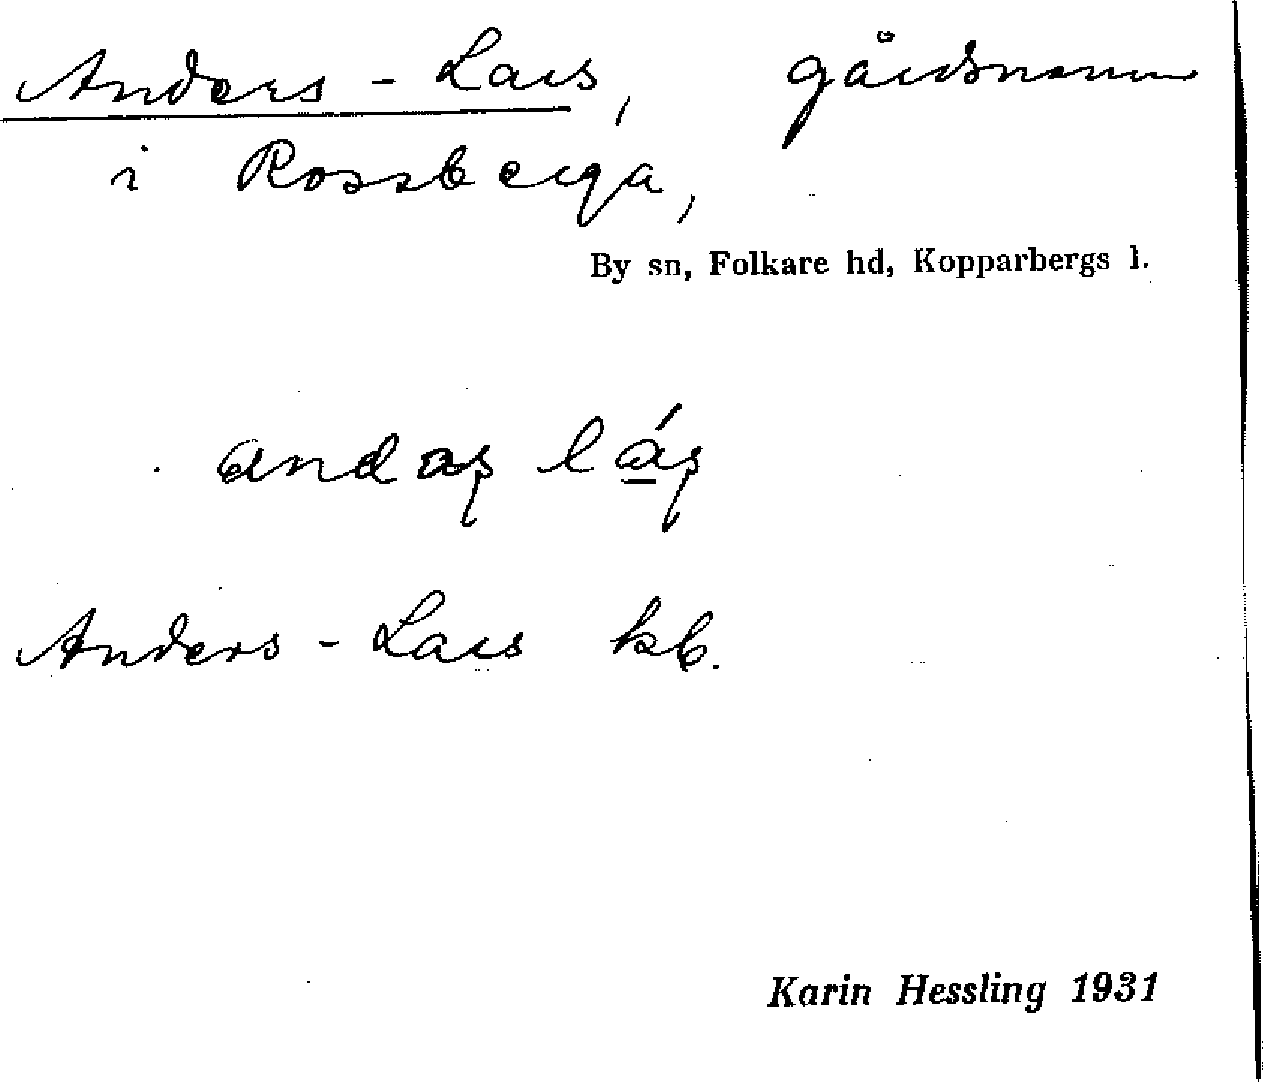 Anders-Lars, gårdsnamn
i Rossberga,
By sn, Folkare hd, Kopparbergs l.
andaʂ lá̱ʂ
Anders-Lars kb.
Karin Hessling 1931